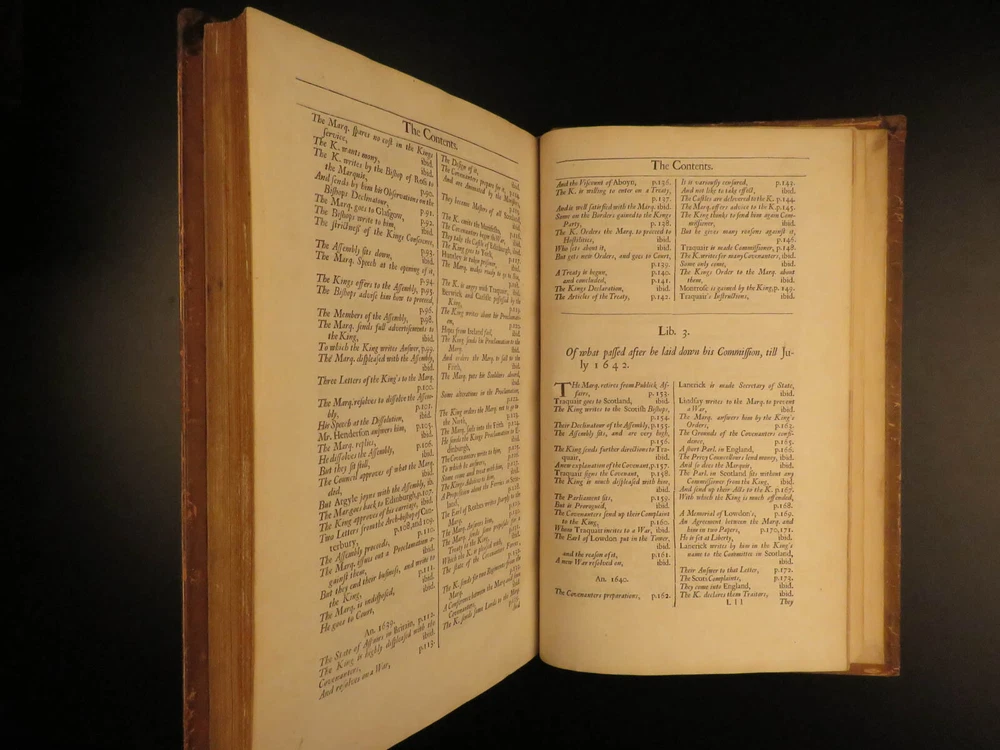 The Contents.
The Marq. spares no cost in the Kings
service, ibid.
The K. wants money, ibid.
The K. writes by the Bishop of Ross to
the Marquis, p.90.
And sends by him his Observations on the
Bishops Declinatour, p.91.
The Marq. goes to Glasgow, p.92.
The Bishops write to him, ibid.
The strictness of the Kings Conscience,
ibid.
The Assembly sits down, p.93.
The Marq. Speech at the opening of it,
p.94.
The Kings offers to the Assembly, p.95.
The Bishops advise him how to proceed,
p.96.
The Members of the Assembly, p.98.
The Marq. sends full advertisements to
the King, ibid.
To which the King writes Answer, p.99.
The Marq. displeased with the Assembly,
ibid.
Three Letters of the King's to the Marq.
p.100.
The Marq. resolves to dissolve the Assembly,
p.101.
His Speech at the Dissolution, ibid.
Mr. Henderson answers him, p.105.
The Marq. replies, ibid.
He dissolves the Assembly, p.106.
But they sit still, ibid.
The Council approves of what the Marq.
did, ibid.
But Argyle joyns with the Assembly, ib.
The Marq. goes back to Edinburgh, p.107.
The King approves of his carriage, ibid.
Two Letters from the Arch-bishop of Canterbury,
p.108, and 109.
The Assembly proceeds, p.110.
The Marq. issues out a Proclamation against
them, ibid.
But they end their business, and write to
the King, p.111.
The Marq. is indisposed, ibid.
He goes to Court, ibid.
An. 1639.
The State of Affairs in Britain, p.112.
The King is highly displeased with the
Covenanters, ibid.
And resolves on a War, p.113.
The Design of it, ibid.
The Covenanters prepare for it,
And are Animated by the Ministers,
They become Masters of all Scotland,
The K. enters the
The Covenanters begin the War,
They take the Castle of Edinburgh, ibid.
The King goes to York, p.117.
Huntley is taken prisoner, ibid.
The Marq. makes ready to go to Sea,
The K. is angry with Traquair, ibid.
Berwick and Carlisle possessed by the
King, p.119.
The King writes about his Proclamation,
Hopes from Ireland fail, ibid.
The King sends his Proclamation to the
Marq. ibid.
And orders the Marq. to sail to the
Frith, ibid.
The Marq. puts his Souldiers aboard,
ibid.
Some alterations in the Proclamation,
The King orders the Marq. not to go to
the North, p.123.
The Marq. sails into the Frith, p.124.
He sends the Kings Proclamation to Edinburgh,
ibid.
The Covenanters write to him, p.125.
To which he answers, ibid.
Some come and treat with him, ibid.
The Kings Advice to him, ibid.
A Proposition about the Forces in Scotland,
The Earl of Rothes writes sharply to the
Marq.
The Marq. Answers him,
The Marq. sends some proposals for a
Treaty to the King,
Which the K. is pleased with,
The state of the Covenanters Forces,
The K. sends for two Regiments from the
Marq.
A Conference between the Marq. and some
Covenanters,
The K. sends some Lords to the Marq.
ibid
The Contents.
And the Viscount of Aboyn, p.136.
The K. is willing to enter on a Treaty,
p.137.
And is well satisfied with the Marq. ibid.
Some on the Borders gained to the Kings
Party, p.138.
The K. Orders the Marq. to proceed to
Hostilities, ibid.
Who sets about it, ibid.
But gets new Orders, and goes to Court,
p.139.
A Treaty is begun, p.140.
and concluded, p.141.
The Kings Declaration, ibid.
The Articles of the Treaty, p.142.
It is variously censured, p.142.
And not like to take effect, ibid.
The Castles are delivered to the K. p.144.
The Marq. offers advice to the K. p.145.
The King thinks to send him again Commissioner,
ibid.
But he gives many reasons against it,
p.146.
Traquair is made Commissioner, p.148.
The K. writes for many Covenanters, ibid.
Some only come, ibid.
The Kings Order to the Marq. about
them, ibid.
Montrose is gained by the King, p.149.
Traquair's Instructions, ibid.
Lib. 3.
Of what passed after he laid down his Commission, till Ju-
ly 1642.
THe Marq. retires from Publick Af-
faires, p.153.
Traquair goes to Scotland, ibid.
The King writes to the Scotish Bishops,
p.154.
Their Declinatour of the Assembly, p.155.
The Assembly sits, and are very high,
p.156.
The King sends further directions to Tra-
quair, ibid.
A new explanation of the Covenant, p.157.
Traquair signs the Covenant, p.158.
The King is much displeased with him,
ibid.
The Parliament sits, p.159.
But is Prorogued, ibid.
The Covenanters send up their Complaint
to the King, p.160.
Whom Traquair incites to a War, ibid.
The Earl of Lowdon put in the Tower,
ibid.
and the reason of it, p.161.
A new War resolved on, ibid.
An. 1640.
The Covenanters preparations, p.162.
Lanerick is made Secretary of State,
ibid.
Lindsay writes to the Marq. to prevent
a War, ibid.
The Marq. answers him by the King's
Orders, p.163.
The Grounds of the Covenanters confi-
dence, p.165.
A short Parl. in England, p.166.
The Privy Councellours lend money, ibid.
And so does the Marquis, ibid.
The Parl. in Scotland sits without any
Commissioner from the King, ibid.
And send up their Acts to the K. p.167.
With which the King is much offended,
p.168.
A Memorial of Lowdon's, p.169.
An Agreement between the Marq. and
him in two Papers, p.170, 171.
He is set at Liberty, ibid.
Lanerick writes by him in the King's
name to the Committee in Scotland,
ibid.
Their Answer to that Letter, p.172.
The Scots Complaints, p.173.
They come into England, ibid.
The K. declares them Traitors, ibid.
L l l They